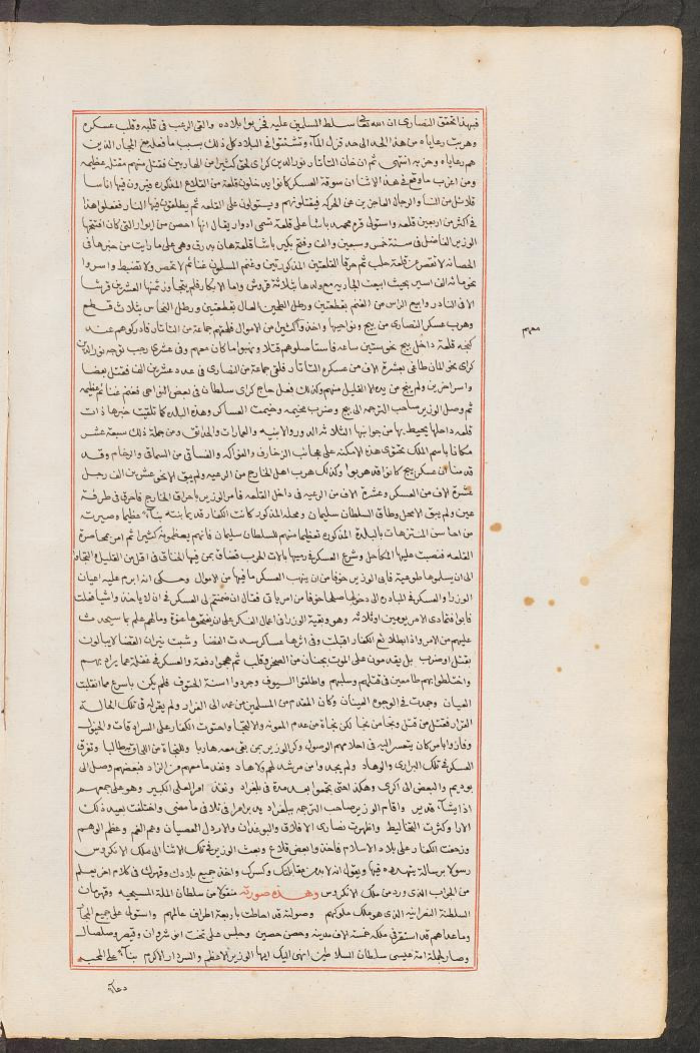 فبهذا تحقق النصارى ان الله تعالى سلط المسلمين عليه فخربوا بلاده والقى الرعب فى قلبه وقلب عسكره
وهربت رعاياه من هذا الحد الى حد قزل الماء وتشتتوا فى البلاد كل ذلك بسبب ما فعله بيج الجار الذين
هم رعاياه وحزبه انتهى ثم ان خان التاتار نور الدين كراى لحق كثيرا من الهاربين فقتل منهم مقتلة عظيمه
ومن اغرب ما وقع فى هذا الاثنا ان سوقة العسكر كانوا يدخلون قلعة من القلاع المذكوره فيرون فيها اناسا
قلائل من النسا والرجال العاجزين عن الحركه فيقتلونهم ويستولون على القلعه ثم يطلقون فيها النار ففعلوا هذا
فى اكثر من اربعين قلعه واستولى قره محمد باشا على قلعة تسمى ادوار يقال انها احصن من ايوار التى كان افتتحها
الوزير الفاضل فى سنة خمس وسبعين والف وفتح بكير باشا قلعة هان بدرق وهى على ما رايت من خبرها فى
الحصانه لا تقصر عن قلعة حلب ثم حرقا القلعتين المذكورتين وغنم المسلمون غنائم لا تحصر ولا تضبط واسروا
نحو مائة الف اسير بحيث ابيعت الجاريه مع ولدها بثلاثة قروش واما الابكار فلم يتجاوز ثمنها العشرين قرشا
الا فى النادر وابيع الراس من الغنم بقطعتين ورطل الطحين العال بقطعتين ورطل النحاس بثلاث قطع
وهرب عسكر النصارى من بيج ونواحيها واخذوا كثيرا من الاموال فلحقهم جماعة من التاتار فادركوهم عند
كجه قلعة داخل بيج بنحو ستين ساعه فاستاصلوهم قتلا ونهبوا ما كان معهم وفى عشرى رجب توجه نور الدين
كراى نحو المان طاغى بعشرة الاف من عسكره التاتار فلقى جماعة من النصارى فى عدد عشرين الف فقتل بعضا
واسر اخرين ولم ينج من يده الا القليل منهم وكذلك فعل حاج كراى سلطان فى بعض النواحى فغنم غنائم عظيمه
ثم وصل الوزير صاحب الترجمه الى بيج وضرب مخيمه وخيمت العساكر وهذه البلده كما تلقيت خبرها ذات
قلعه داخلها يحيط بها من جوانبها الثلاثه الدور والابنيه والعمارات والحدائق ومن جملة ذلك سبعة عشر
مكانا باسم الملك تحتوى هذه الامكنه على عجائب الزخارف والفواكه والفساقى من السماق والرخام وقد
قدمنا ان عسكر بيج كانوا قد هربوا وكذلك هرب اهل الخارج من الرعيه ولم يبق الا نحو عشرين الف رجل
عشرة الاف من العسكر وعشرة الاف من الرعيه فى داخل القلعه فامر الوزير باحراق الخارج فاحرق فى طرفة
عين ولم يبق الا محل وطاق السلطان سليمان ومحله المذكور كانت الكفار قديما بنته بناء عظيما وصيرته
من احاسن المنتزهات بالبلدة المذكوره تعظيما منهم للسلطان سليمان فانهم يعظمونه كثيرا ثم امر بمحاصرة
القلعه فنصبت عليها المكاحل وشرع العسكر فى رميها بالات الحرب فضاق بمن فيها الخناق فى اقل من القليل والتجاوا
الى ان يسلموها طوعيه فابى الوزير خوفا من ان ينهب العسكر ما فيها من الاموال وحكى انه ابرم عليه اعيان
الوزرا والعسكر فى المبادره الى دخولها صلحا خوفا من امر ياتى فقال ان ضمنتم لى العسكر فى ان لا ياخذوا شيا فعلت
فابوا فتمادى الامر يومين او ثلاثه وهو وبقية الوزرا فى اعمال الفكر على ان يفتحوها عنوة وما لهم علم بما سيحدث
عليهم من الامر واذا بطلائع الكفار اقبلت وفى اثرها عساكر سدت الفضا وشبت نيران القضا لا يبالون
بقتل او ضرب بل يقدمون على الموت بجنان من الصخر وقلب ثم هجموا دفعة والعسكر فى غفلة عما يراد بهم
واختلطوا بهم طامعين فى قتلهم وسلبهم واطلقوا السيوف وجردوا اسنة الحتوف فلم يكن باسرع مما انقلبت
العيان وجدت فى الوجوع العينان وكان المقدم من المسلمين من عمد الى الفرار ولم يقر له فى تلك الحالة
القرار فقتل من قتل ونجا من نجا لكن نجاة من عدم المعونه والالتجا واحتوت الكفار على السرادقات والخيول
وفازوا بما كان يتعسر اليه فى احلامهم الوصول وكر الوزير بمن بقى معه هاربا وللنجاة من اللحاق طالبا وتفرق
العسكر فى تلك البرارى والوهاد ولم يجدوا من مرشد لهم ولا هاد ونفد ما معهم من الزاد فبعضهم وصل الى
بوديم والبعض الى اكرى وهكذا حتى تجمعوا بعد مدة فى بلغراد ونفذ امر العلى الكبير وهو على جمعهم
اذا يشاء قدير واقام الوزير صاحب الترجمه ببلغراد يدبر امرا فى تلافى ما مضى واختلفت بعد ذلك
الارا وكثرت التخاليط واظهرت نصارى الافلاق والبوغدان والاردل العصيان وهم الغم وعظم الوهم
وزحفت الكفار على بلاد الاسلام فاخذوا بعض قلاع وبعث الوزير فى تلك الاثنا الى ملك الانكروس
رسولا برسالة يتهدده فيها ويقول انه لا بد من مقابلتك وكسرك واخذ جميع بلادك وقهرك فى كلام اخر يعلم
من الجواب الذى ورد من ملك الانكروس وهذه صورته منقولا من سلطان الملة المسيحيه وقهرمان
السلطنة النصرانيه الذى هو ملك ملوكهم وصولته قد احاطت باربعة اطراف عالمهم واستولى على جميع البحار
وما عداهم قد استقر فى ملكه خمسة الاف مدينه وحصن حصين وجلس على تخت انوشروان وقيصر وصلصال
وصار لجملة امة عيسى سلطان السلاطين انهى اليك ايها الوزير الاعظم والسردار الاكرم بناء على المحبه
معهم
دعاك